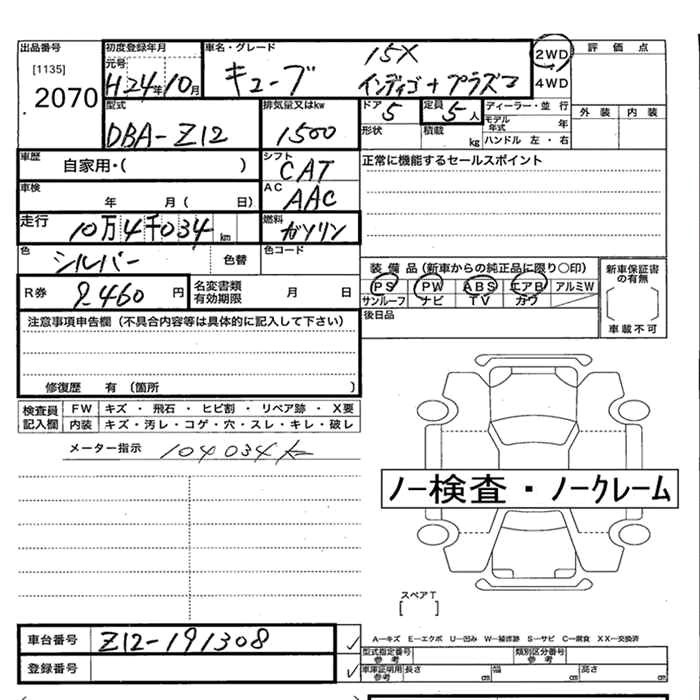 出品番号
[1135]
2070
初度登録年月
元号
H24年10月
車名・グレード
15X
キューブ
インディゴ+プラズマ
2WD
4WD
評価点
外装 内装
型式
DBA-Z12
排気量又はkw
1500
ドア
5
形状
定員
5人
積載
kg
ディーラー・並行
モデル年式 年
ハンドル 左・右
車歴
自家用・( )
シフト
CAT
正常に機能するセールスポイント
車検
年 月( 日)
AC
AAC
走行
10万4千034km
燃料
ガソリン
色
シルバー
色替
色コード
装備品(新車からの純正品に限り○印)
PS PW ABS エアB アルミW
サンルーフ ナビ TV カワ
新車保証書の有無
車載不可
R券
9460円
名変書類有効期限
月 日
後日品
注意事項申告欄(不具合内容等は具体的に記入して下さい)
修復歴 有(箇所 )
検査員記入欄
FW キズ・飛石・ヒビ割・リペア跡・X要
内装 キズ・汚レ・コゲ・穴・スレ・キレ・破レ
メーター指示 104034km
ノー検査・ノークレーム
スペアT
[ ]
車台番号
Z12-191308
登録番号
A-キズ E-エクボ U-凹み W-補修跡 S-サビ C-腐食 XX-交換済
型式指定番号
参考
類別区分番号
参考
車庫証明用
参考
長さ cm
幅 cm
高さ cm